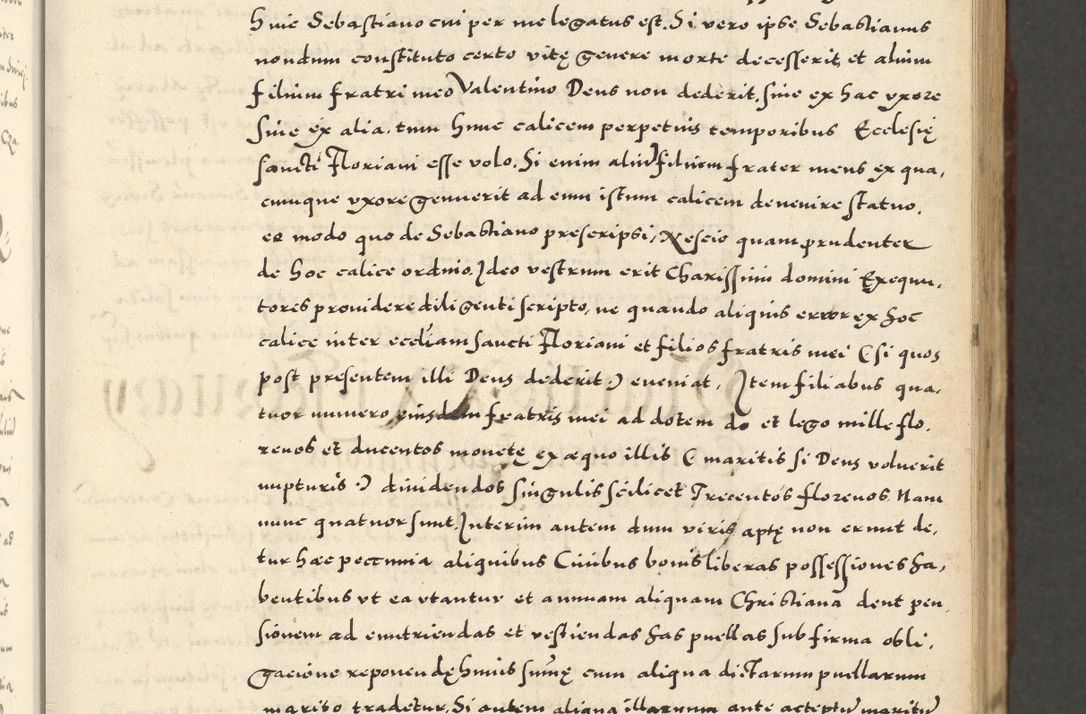 huic Sebastiano cui per me legatus est. Si vero ipse Sebastianus
nondum constituto certo vitę genere morte decesserit, et alium
filium fratri meo Valentino Deus non dederit, siue ex hac vxore
siue ex alia, tum hunc calicem perpetuis temporibus Ecclesię
sancti Floriani esse volo. Si enim aliu filium frater meus ex qua,
cumque vxore genuerit ad eum istum calicem deuenire statuo,
eo modo quo de Sebastiano prescripsi, Nescio quam prudenter
de hoc calice ordino, Ideo vestrum erit Charissimi domini Exequu,
tores prouidere diligenti scripto, ne quando aliquis error ex hoc
calice inter eccliam sancti Floriani et filios fratris mei (si quos
post presentem illi Deus dederit.) eueniat, Item filiabus qua,
tuor numero, eiusdem fratris mei ad dotem do et lego mille flo,
renos et ducentos monetę ex æquo illis (maritis si Deus voluerit
nupturis.) diuidendos singulis scilicet Trecentos florenos. Nam
nunc quatuor sunt. Interim autem dum viris aptę non erunt de,
tur hæc peccunia aliquibus Ciuibus bonis liberas possessiones ha,
bentibus vt ea vtantur et annuam aliquam Christiana dent pen,
sionem ad enutriendas et vestiendas has puellas sub firma obli,
gacione reponendę huius sumę cum aliqua dictarum puellarum
marito tradetur. Si autem aliqua illarum ante acceptu maritu